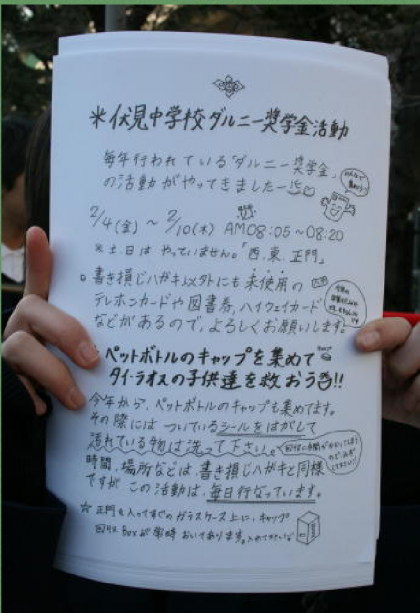 *伏見中学校ダルニー奨学金活動
毎年行われている「ダルニー奨学金」
の活動がやってきましたー!!
2/4(金)~2/10(木) AM08:05~08:20
※土日は やっていません。「西、東、正門」
○書き損じハガキ以外にも未使用の
テレホンカードや図書券、ハイウェイカード
などがあるので、よろしくお願いします。
ペットボトルのキャップを集めて
タイ・ラオスの子供達を救おう!!
今年から、ペットボトルのキャップも集めてます。
その際には ついているシールをはがして
汚れている物は洗って下さい。
時間、場所などは、書き損じハガキと同様
ですが この活動は、毎日行なっています。
☆正門を入ってすぐの ガラスケース上に、キャップ
回収Boxが常時おいてあります。入れてください